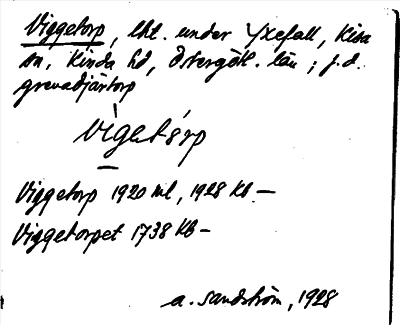 Viggetorp, lht. under Yxefall, Kisa
sn, Kinda hd, Östergötl. län; f.d.
grenadjärtorp
Vigetårp
Viggetorp 1920 ml, 1928 Kb. —
Viggetorpet 1738 Kb —
A. Sandström, 1928